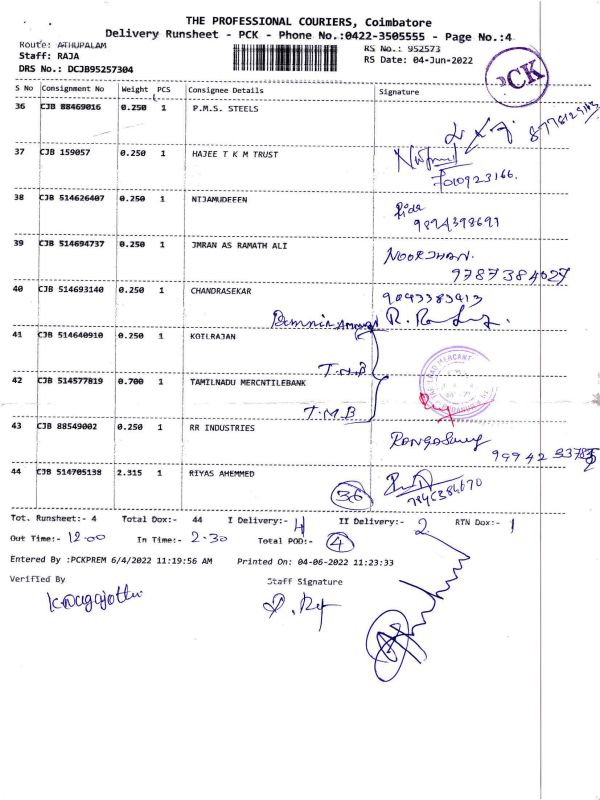 THE PROFESSIONAL COURIERS, Coimbatore
Delivery Runsheet - PCK - Phone No.:0422-3505555 - Page No.:4
Route: ATHUPALAM
RS No.: 952573
Staff: RAJA
RS Date: 04-Jun-2022
DRS No.: DCJB95257304
PCK
S No Consignment No Weight PCS Consignee Details Signature
36 CJB 88469016 0.250 1 P.M.S. STEELS
37 CJB 159057 0.250 1 HAJEE T K M TRUST
7010923166.
38 CJB 514626407 0.250 1 NIJAMUDEEEN
9894398691
39 CJB 514694737 0.250 1 JMRAN AS RAMATH ALI
NOORJHAN.
9787384027
40 CJB 514693140 0.250 1 CHANDRASEKAR
9043383413
41 CJB 514640910 0.250 1 KOILRAJAN
T.M.B
42 CJB 514577819 0.700 1 TAMILNADU MERCNTILEBANK
T.M.B
43 CJB 88549002 0.250 1 RR INDUSTRIES
Rangasamy
44 CJB 514705138 2.315 1 RIYAS AHEMMED
36
7845384670
Tot. Runsheet:- 4 Total Dox:- 44 I Delivery:- 4 II Delivery:- 2 RTN Dox:- 1
Out Time:- 12.00 In Time:- 2.30 Total POD:- 4
Entered By :PCKPREM 6/4/2022 11:19:56 AM Printed On: 04-06-2022 11:23:33
Verified By Staff Signature